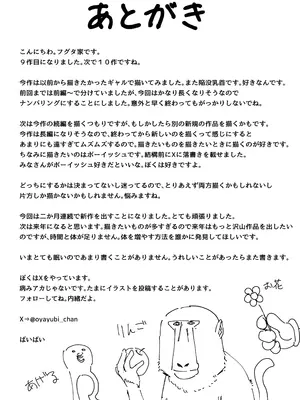 あとがき
こんにちわ。フグタ家です。
9作目になりました。次で10作ですね。
今作は以前から描きたかったギャルで描いてみました。また陥没乳首です。好きなんです。
前回までは前編〜で分けていましたが、今回はかなり長くなりそうなので
ナンバリングにすることにしました。意外と早く終わってもがっかりしないでね。
次は今作の続編を描くつもりですが、もしかしたら別の新規の作品を描くかもです。
今作は長編になりそうなので、終わってから新しいのを描くって感じにすると
あまりにも遠すぎてムズムズするので。描きたいものを描きたいときに描くのが好きです。
ちなみに描きたいのはボーイッシュです。結構前にXに落書きを載せました。
みなさんがボーイッシュ好きだといいな。ぼくは好きですよ。
どっちにするかは決まってないし迷ってるので、とりあえず両方描くかもしれないし
片方しか描かないかもしれません。悩みますね。
今回は二か月連続で新作を出すことになりました。とても頑張りました。
次は来年になると思います。描きたいものが多すぎるので来年はもっと沢山作品を出したい
のですが、時間と体が足りません。体を増やす方法を誰かに発見してほしいです。
いまとても眠いのであまり書くことがありません。うれしいことがあったらまた書きます。
ぼくはXをやっています。
病みアカじゃないです。たまにイラストを投稿することがあります。
フォローしてね。内緒だよ。
X→@oyayubi_chan
ばいばい
お花
りんご
あげる